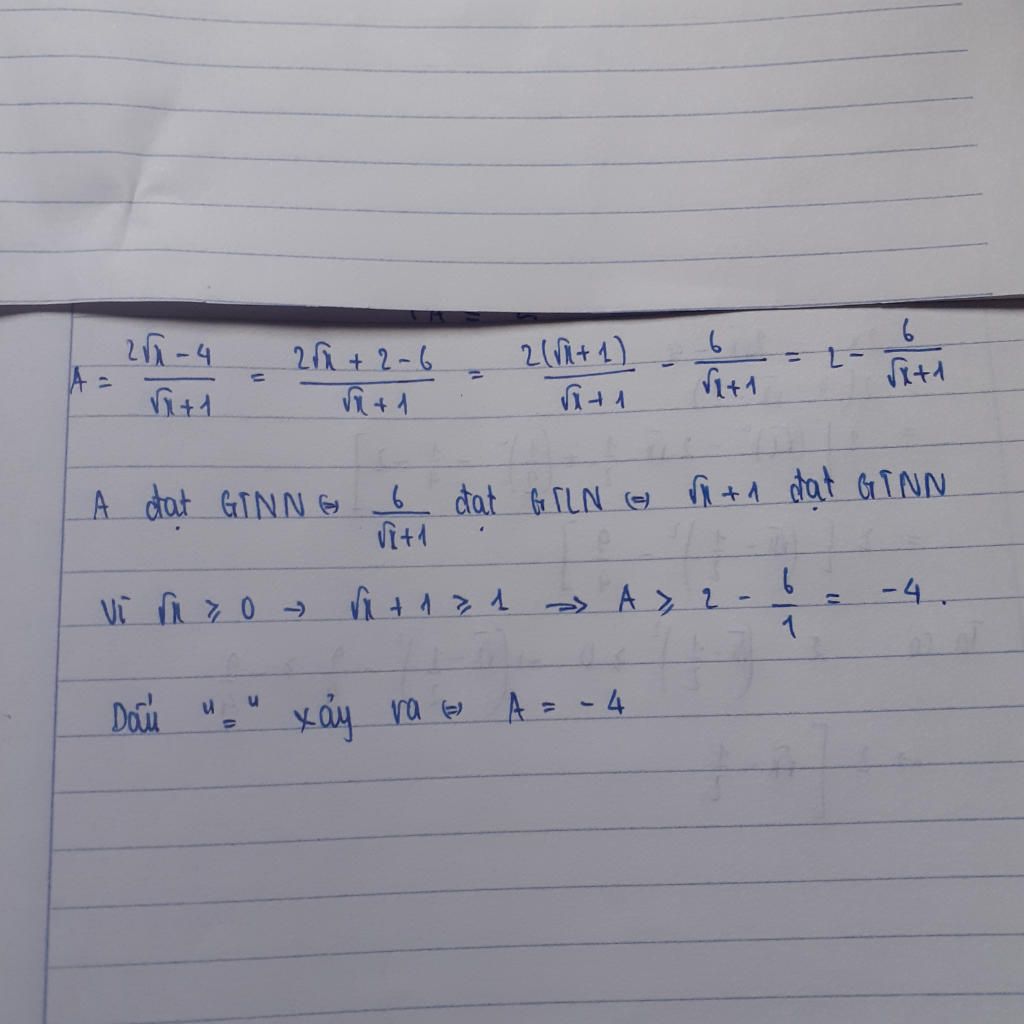 A = (2√x − 4)/(√x + 1) = (2√x + 2 − 6)/(√x + 1) = 2(√x + 1)/(√x + 1) − 6/(√x + 1) = 2 − 6/(√x + 1)
A đạt GTNN ⇔ 6/(√x + 1) đạt GTLN ⇔ √x + 1 đạt GTNN
Vì √x ≥ 0 → √x + 1 ≥ 1 ⇒ A ≥ 2 − 6/1 = −4.
Dấu "=" xảy ra ⇔ A = −4